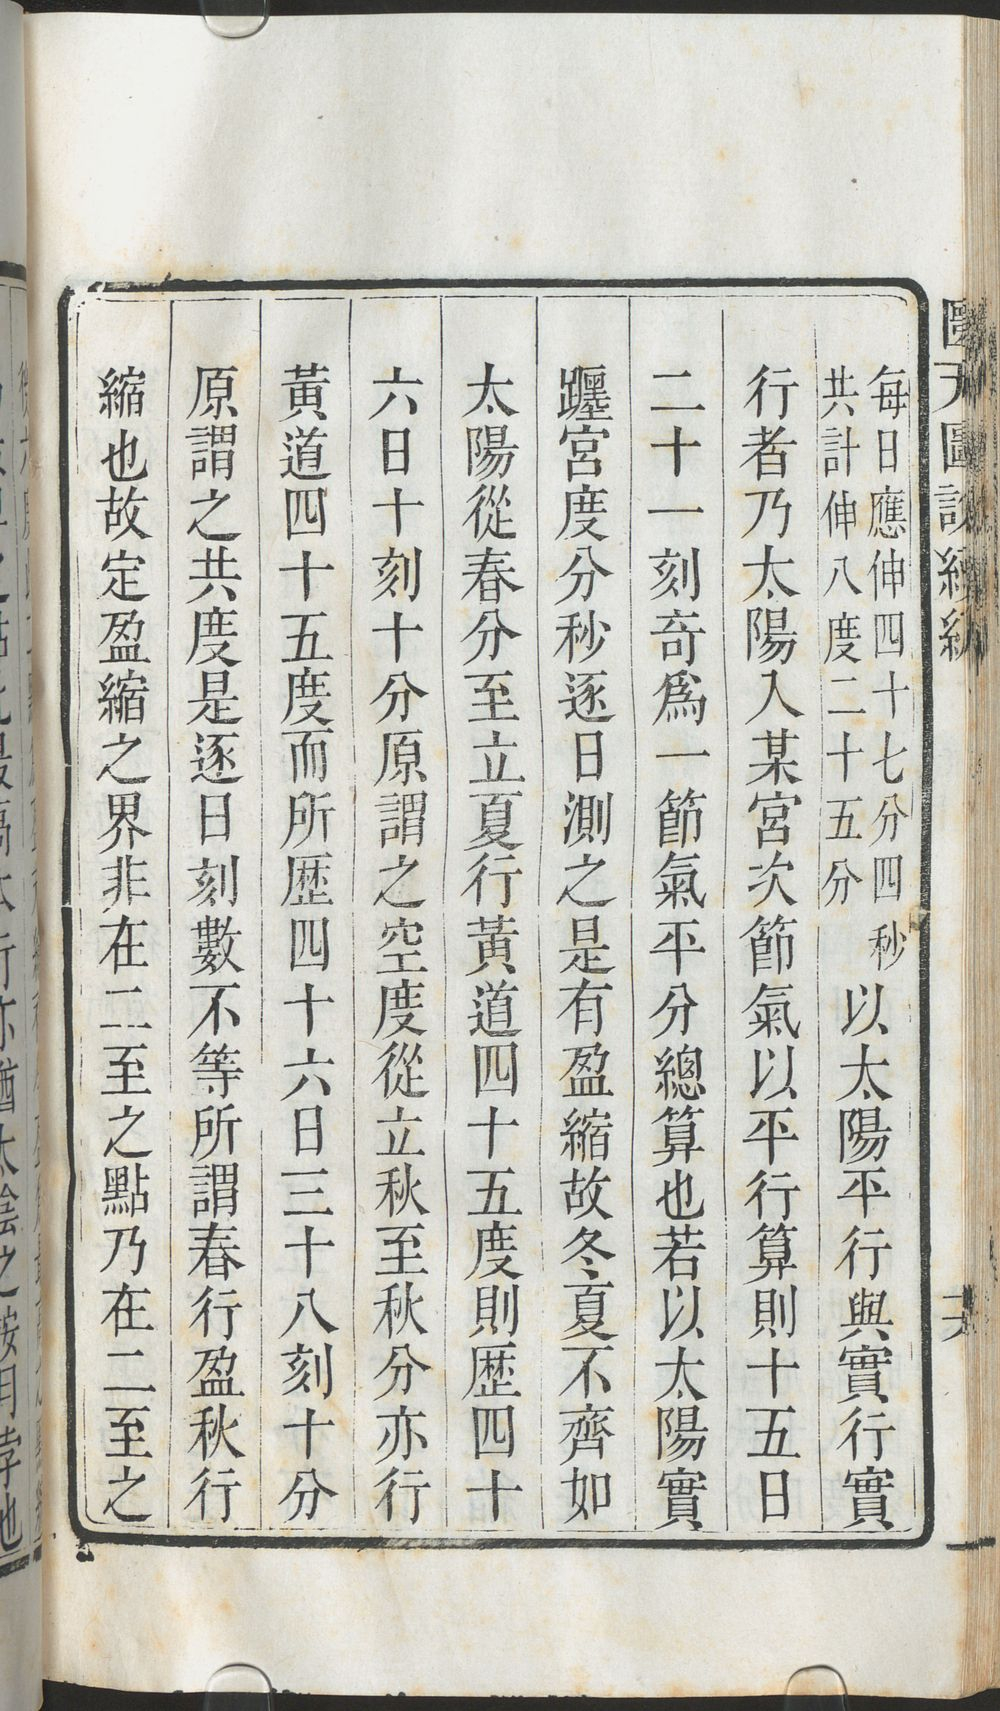 每日應伸四十七分四秒
共計伸八度二十五分
以太陽平行與實行實
行者乃太陽入某宮次節氣以平行算則十五日
二十一刻奇爲一節氣平分總算也若以太陽實
躔宮度分秒逐日測之是有盈縮故冬夏不齊如
太陽從春分至立夏行黃道四十五度則歷四十
六日十刻十分原謂之空度從立秋至秋分亦行
黃道四十五度而所歷四十六日三十八刻十分
原謂之共度是逐日刻數不等所謂春行盈秋行
縮也故定盈縮之界非在二至之點乃在二至之